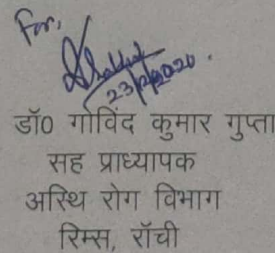 For,
23/12/2020.
डॉ0 गोविंद कुमार गुप्ता
सह प्राध्यापक
अस्थि रोग विभाग
रिम्स, राँची